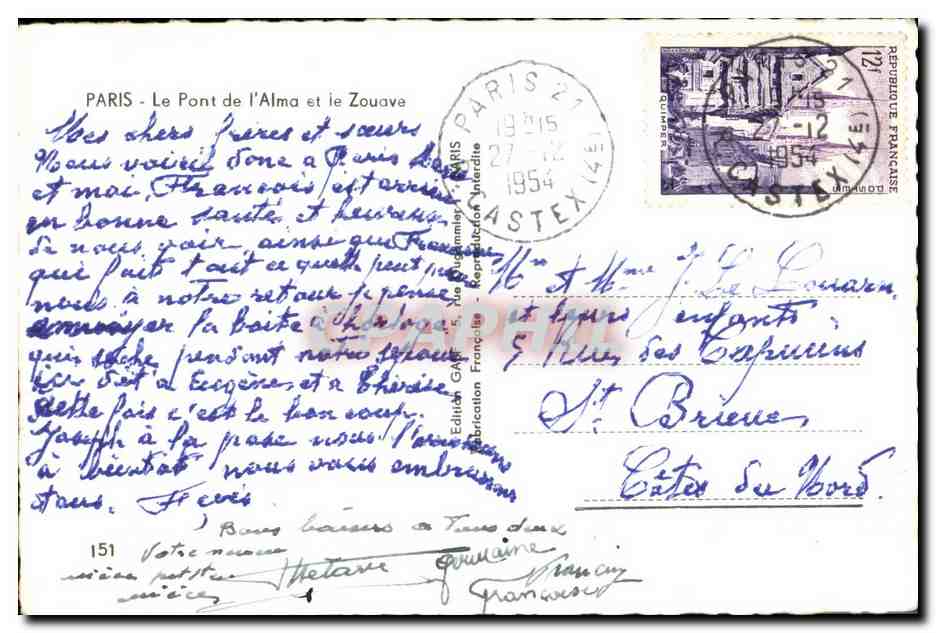 PARIS - Le Pont de l'Alma et le Zouave
Mes chers frères et sœurs
Nous voici donc a Paris
et moi, François est arrivé
en bonne santé et heureux
de nous voir, ainsi que Francine
qui fait tout ce quelle peut pour
nous à notre retour je pense
envoyer la boite à horloge
qui sèche pendant notre séjour
ici dit a Eugène et a Thérèse
cette fois c'est le bon coup.
Joseph à la pose nous l'
à bientôt nous vous embrassons
tous.
Bons baisers a Tous deux
Votre
nièce petite
nièce
Germaine
Francin
Françoise
151
Edition GABY 5, rue Dugommier PARIS
Fabrication Française - Reproduction Interdite
PARIS 21
19H15
27-12
1954
R. CASTEX (4E)
RÉPUBLIQUE FRANÇAISE
12f
POSTES
QUIMPER
PARIS 21
19H15
27-12
1954
R. CASTEX (4E)
CPAPHIL
Mr et Mme J. Le Louarn
et leurs enfants
5 Rue des Capucins
St Brieuc
Côtes du Nord.